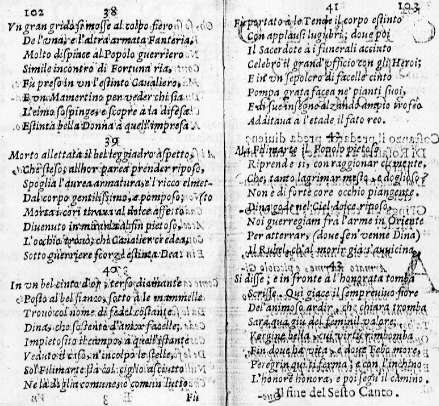 102
38
Vn gran grido si mosse al colpo fiero
De l'vna, e l'altra armata Fanteria,
Molto dispiace al Popolo guerriero
Simile incontro di Fortuna ria,
Fù preso in vn l'estinto Caualiero,
E vn Mamertino per veder chi sia
L'elmo sospinge, e scopre à la difesa
Estinta bella Donna à quell'impresa.
39
Morto allettata il bel leggiadro aspetto,
Che steso, allhor parea prender riposo,
Spoglia l'aurea armatura, e'l ricco elmet-
Dal corpo gentilissimo, e pomposo; (to
Morta i cori tiraua al dolce affetto
Diuenuto in
L'occhio trouò, che Caualier credea,
Sotto guerriere scorze estinta Dea.
40
In vn bel cinto d'or, terso diamante
Posto al bel fianco, sotto à le mammelle
Trouò col nome di fedel costante
Dina, che sostenta d'amor facelle;
Impietosito il campo à quell'istante
Veduto il caso, n'incolpò le stelle,
Sol Filimarte stà col ciglio asciutto
Ne la doglia comune, o comun lutto.
Fù
103
41
Fù portato à le Tende il corpo estinto
Con applausi lugubri, doue poi
Il Sacerdote à i funerali accinto
Celebrò il grand'vfficio con gli Heroi;
E in vn sepolcro di facelle cinto
Pompa grata facea ne' pianti suoi,
E di sue insegne alzando ampio trofeo
Additaua à l'etade il fato reo.
Ma Filimarte il Popolo pietoso
Riprende sì, con raggionar
Che, tanto lagrimar mesto, e doglioso?
Non è di forte core occhio piangente.
Dina gode nel Ciel dolce riposo,
Noi guerregiam frà l'arme in Oriente
Per atterrar, (doue sen' venne Dina)
Il Rubel, ch'al morir già s'auuicina.
Sì disse; e in fronte à l'honorata tomba
Scrisse. Qui giace il sempreuiuo fiore
Del'animoso ardir, che chiara tromba
Sarà qua giù del feminil valore,
Vergine bella, la cui virtù rimbomba
Fin doue hà vita, e doue Febo more.
Peregrin qui ti ferma; e con l'inchino
L'honore honora, e poi segui il camino.
Il fine del Sesto Canto.